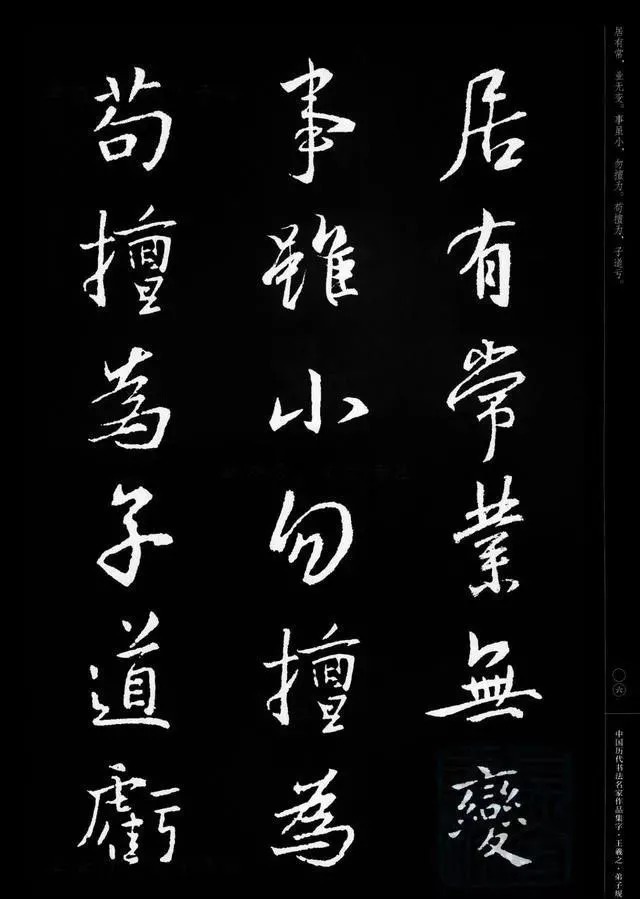 居有常業無變
事雖小勿擅為
苟擅為子道虧
居有常，业无变。事虽小，勿擅为。苟擅为，子道亏。
〇六
中国历代书法名家作品集字·王羲之·弟子规